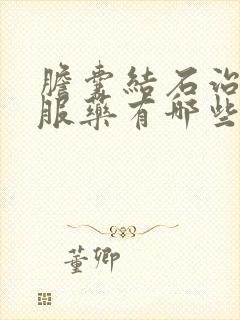 膽囊結石治
服藥有哪些
董卿